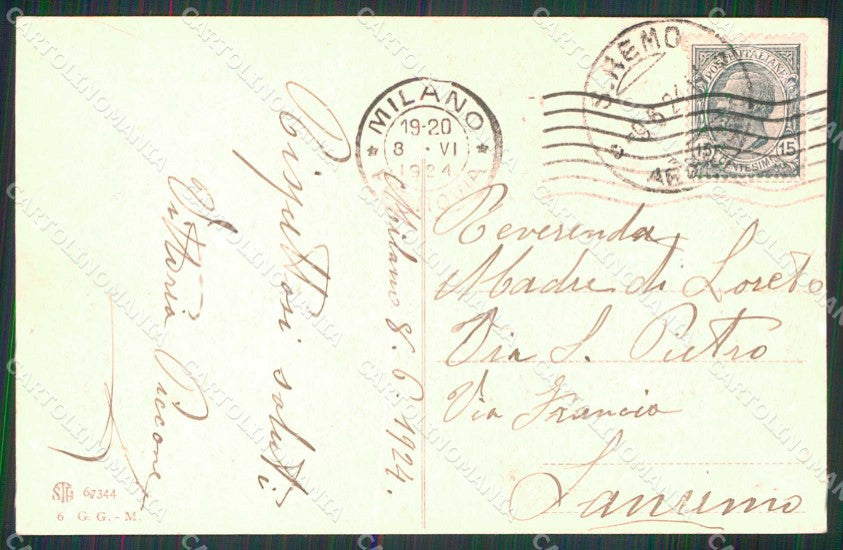 Rispettosi saluti
Vittoria Piccone
Milano 8. 6. 1924.
MILANO
19-20
8 · VI
1924
S. REMO
POSTE ITALIANE
15
15
CENTESIMI
Reverenda
Madre di Loreto
Via S. Pietro
Via Francia
Sanremo
67344
6 G. G. - M.
CARTOLINOMANIA